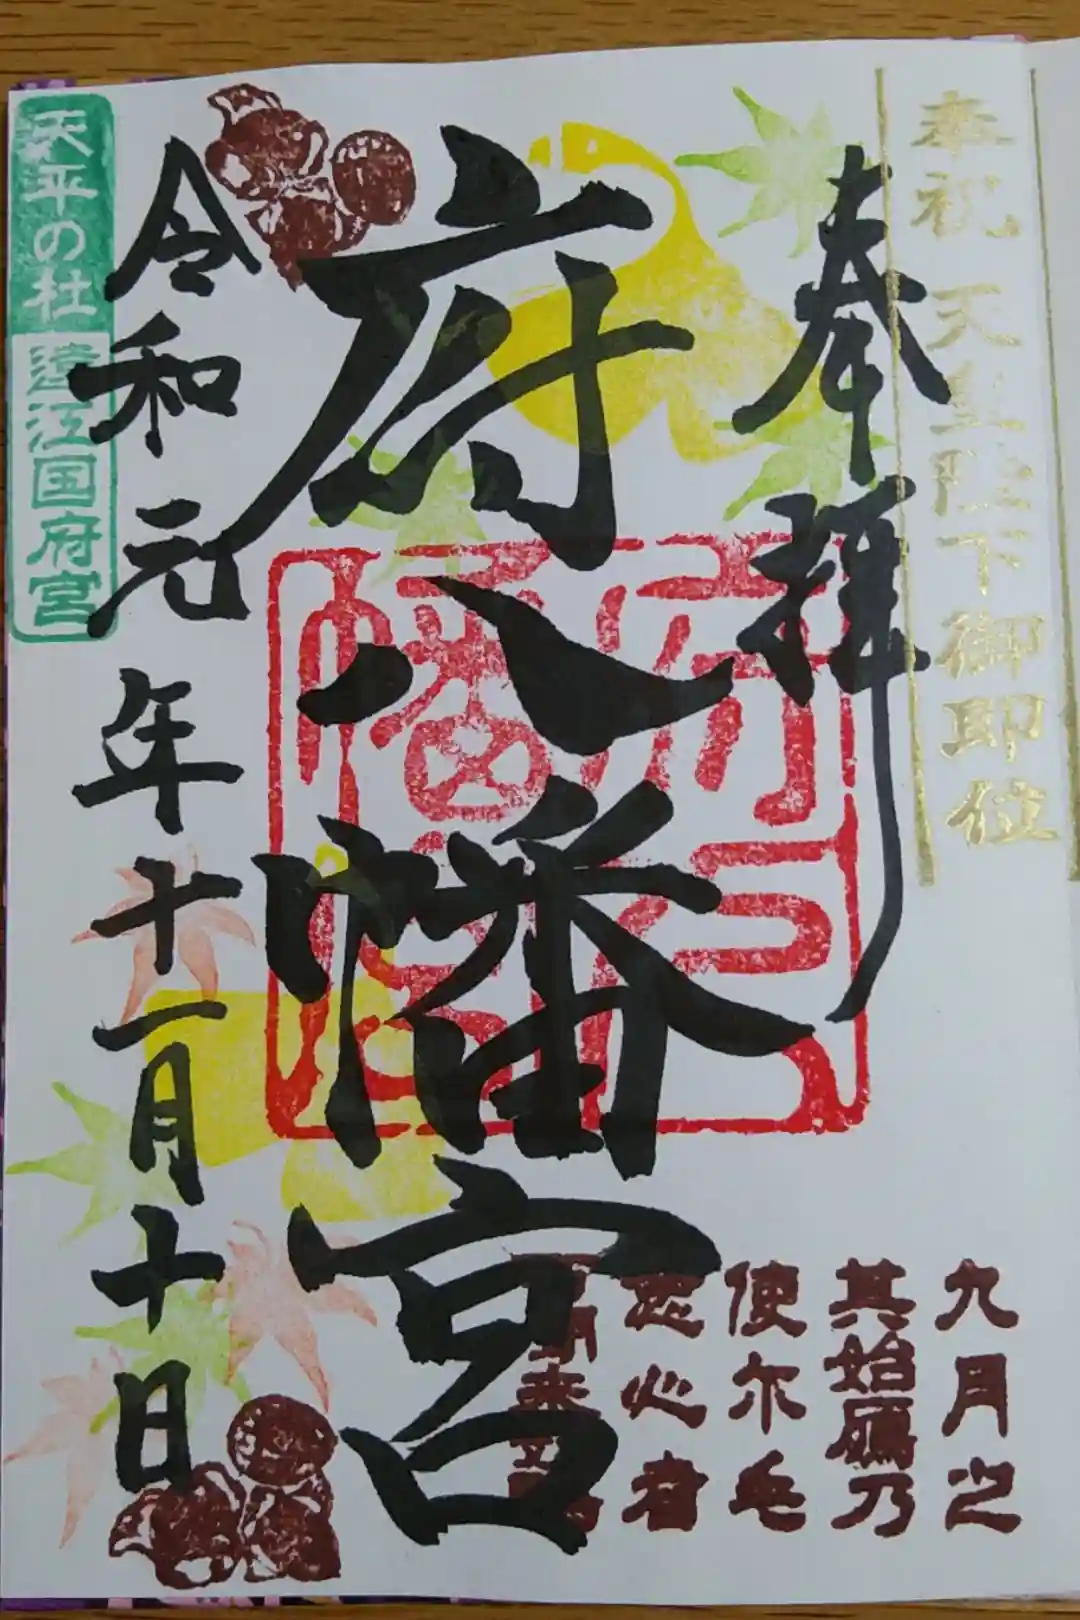 奉祝 天皇陛下御即位
奉拝
府八幡宮
令和元年十一月十日
天平の杜
遠江国府宮
九月之
其始鴈乃
使尓毛
念心者